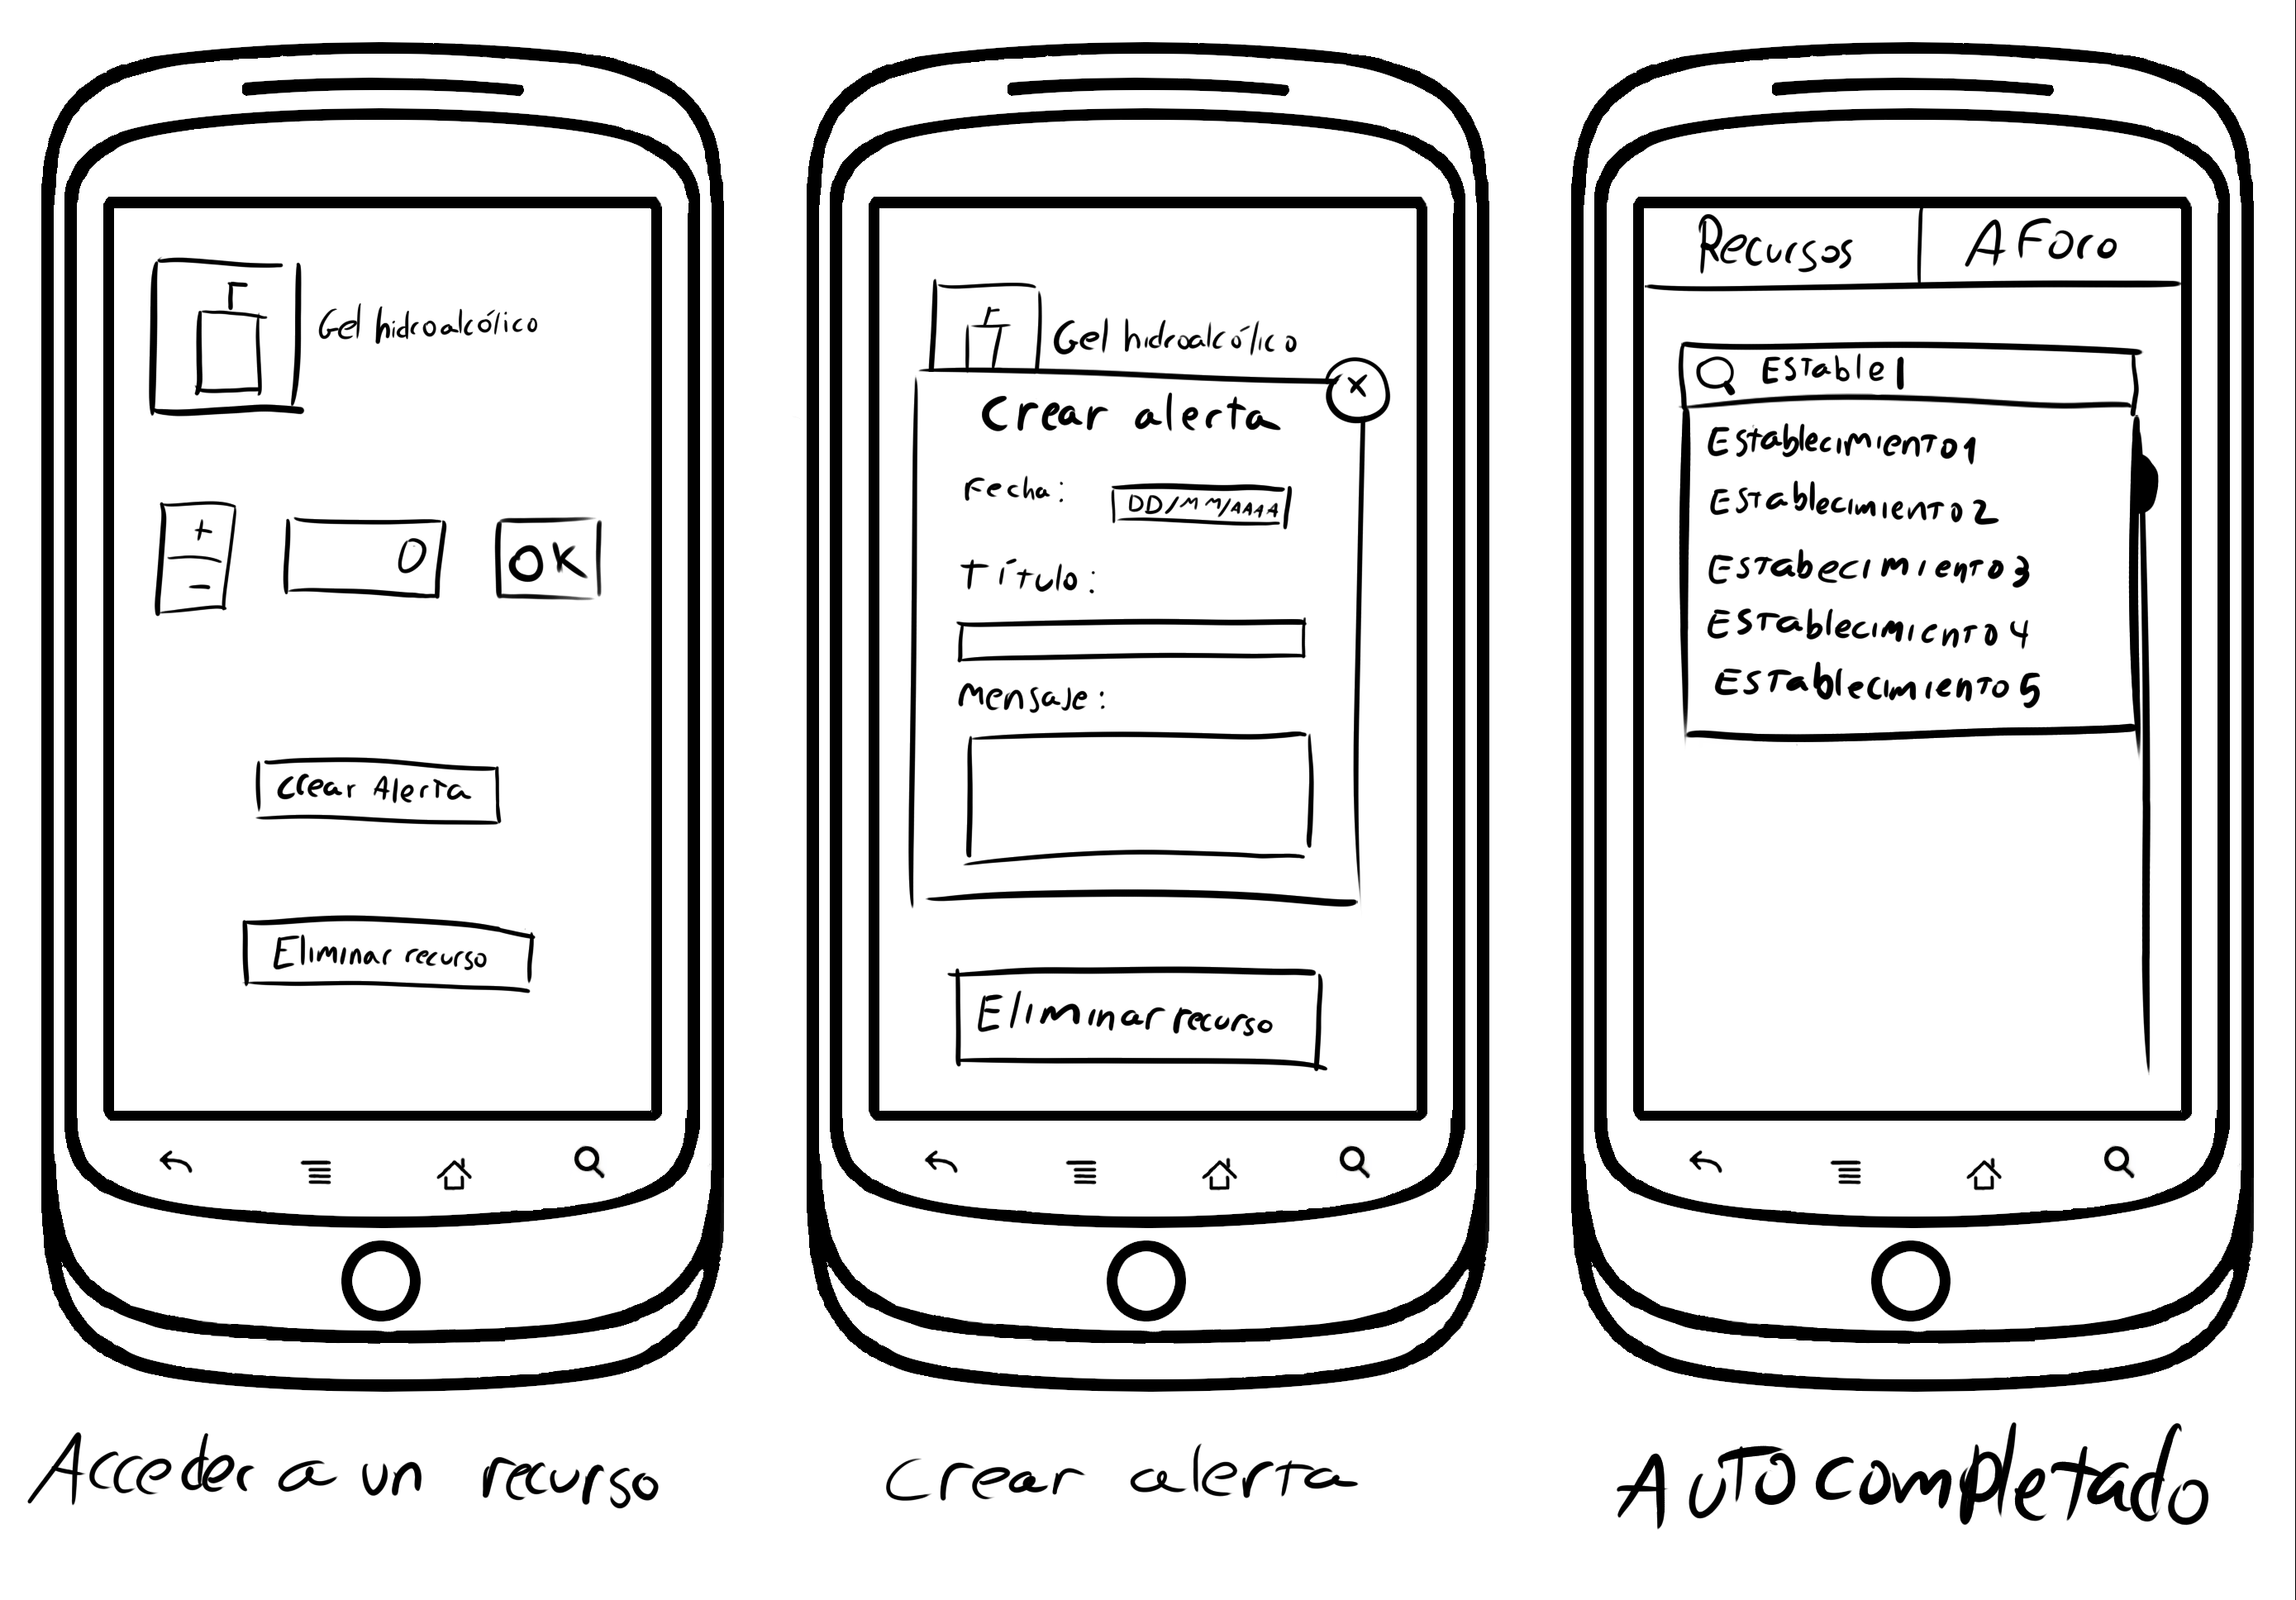 Gel hidroalcólico
+
-
0
OK
Crear Alerta
Eliminar recurso
Acceder a un recurso
Gel hidroalcólico
x
Crear alerta
Fecha: DD/MM/AAAA
Título:
Mensaje:
Eliminar recurso
Crear alerta
Recursos
AForo
Estable|
Establecimiento1
Establecimiento2
Estabecimiento3
Establecimiento4
Establecimiento5
Autocompletado